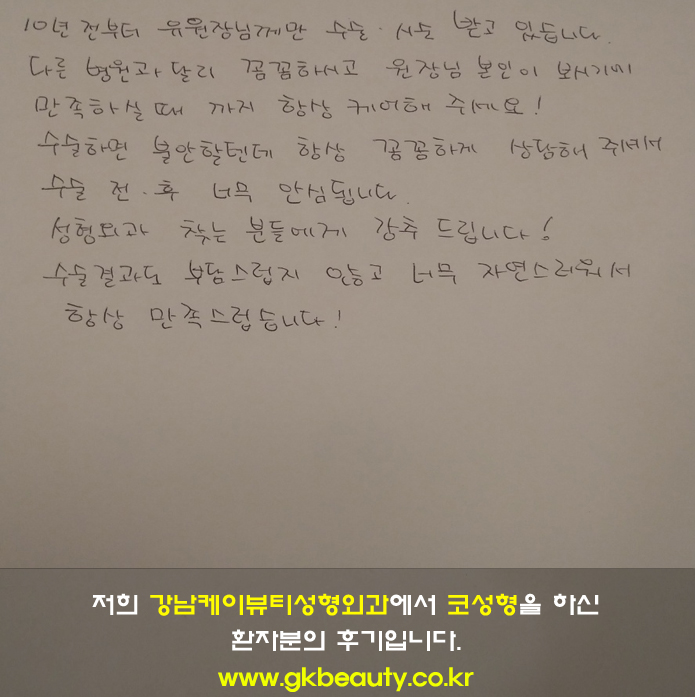 10년 전부터 유원장님께만 수술·시술 받고 있습니다.
다른 병원과 달리 꼼꼼하시고 원장님 본인이 보시기에
만족하실 때 까지 항상 케어해 주세요!
수술하면 불안할텐데 항상 꼼꼼하게 상담해 주셔서
수술 전·후 너무 안심됩니다.
성형외과 찾는 분들에게 강추 드립니다!
수술결과도 부담스럽지 않고 너무 자연스러워서
항상 만족스럽습니다!
저희 강남케이뷰티성형외과에서 코성형을 하신
환자분의 후기입니다.
www.gkbeauty.co.kr